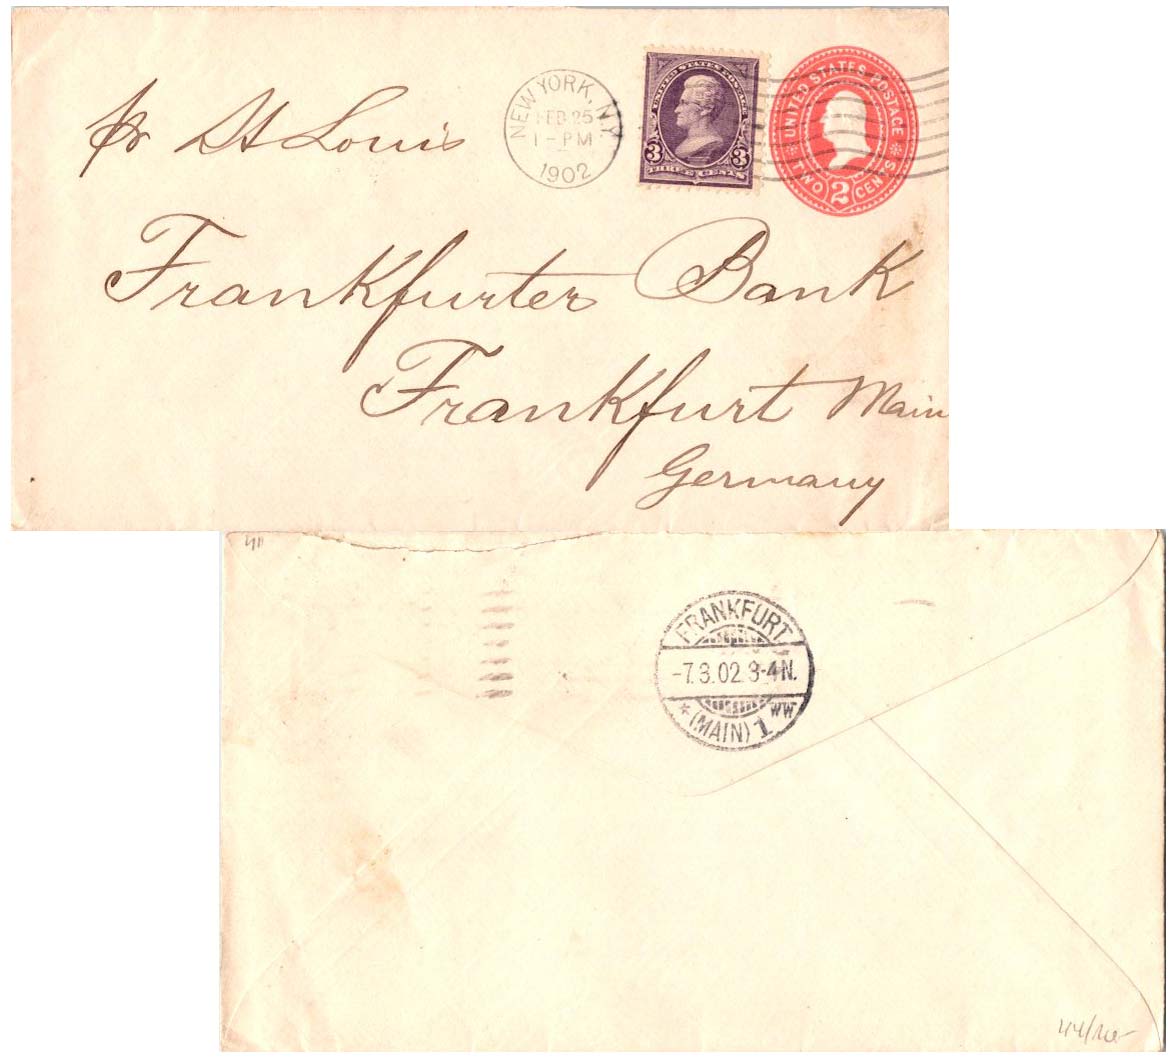 pr St Louis
NEW YORK, N.Y.
FEB 25
1 - PM
1902
UNITED STATES POSTAGE
3 3
THREE CENTS
UNITED STATES POSTAGE
TWO 2 CENTS
Frankfurter Bank
Frankfurt Main
Germany
FRANKFURT
-7.3.02.3-4N.
* (MAIN) 1 WW